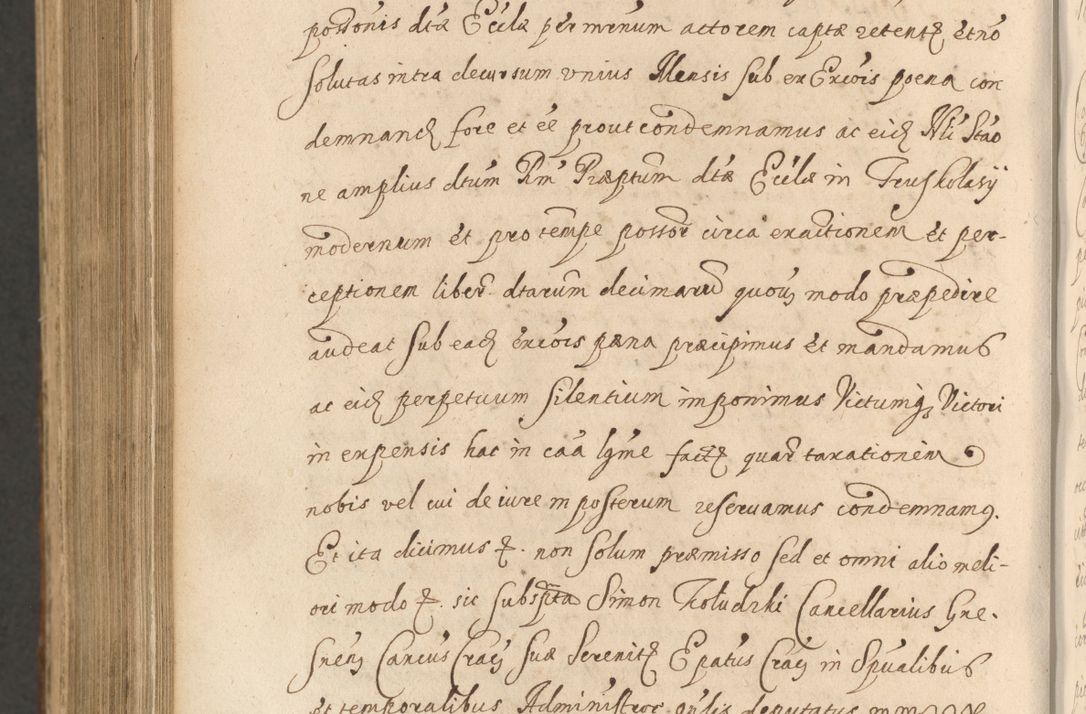 possonis dtæ Eccłæ per menum actorem captæ retentæ et no
solutas intra decursum unius Mensis sub ex Ercois poena con
demnand fore et eē prout condemnamus ac eid Nłi Stao
ne amplius dtum Rm Præptum dtæ Eccłæ in Truskolasÿ
modernum et pro tempe possor circa exactionem et per-
ceptionem liber dtarum decimaru quovis modo præpedire
audeat sub ead ercois pæna præcipimus et mandamus
ac eid perpetuum silentium imponimus Victumq Victori
in expensis hac in caa lgme factæ quar taxationem
nobis vel cui de iure in posterum reservamus condemnamq.
Et ita dicimus &. non solum præmisso sed et omni alio meli-
ori modo &. sic subsptta Simon Kołudzki Cancellarius Gne-
snen Cancus Crac Suæ Serenitæ Epatus Crac in Spualibus
et temporalibus Administror gnlis deputatus mm